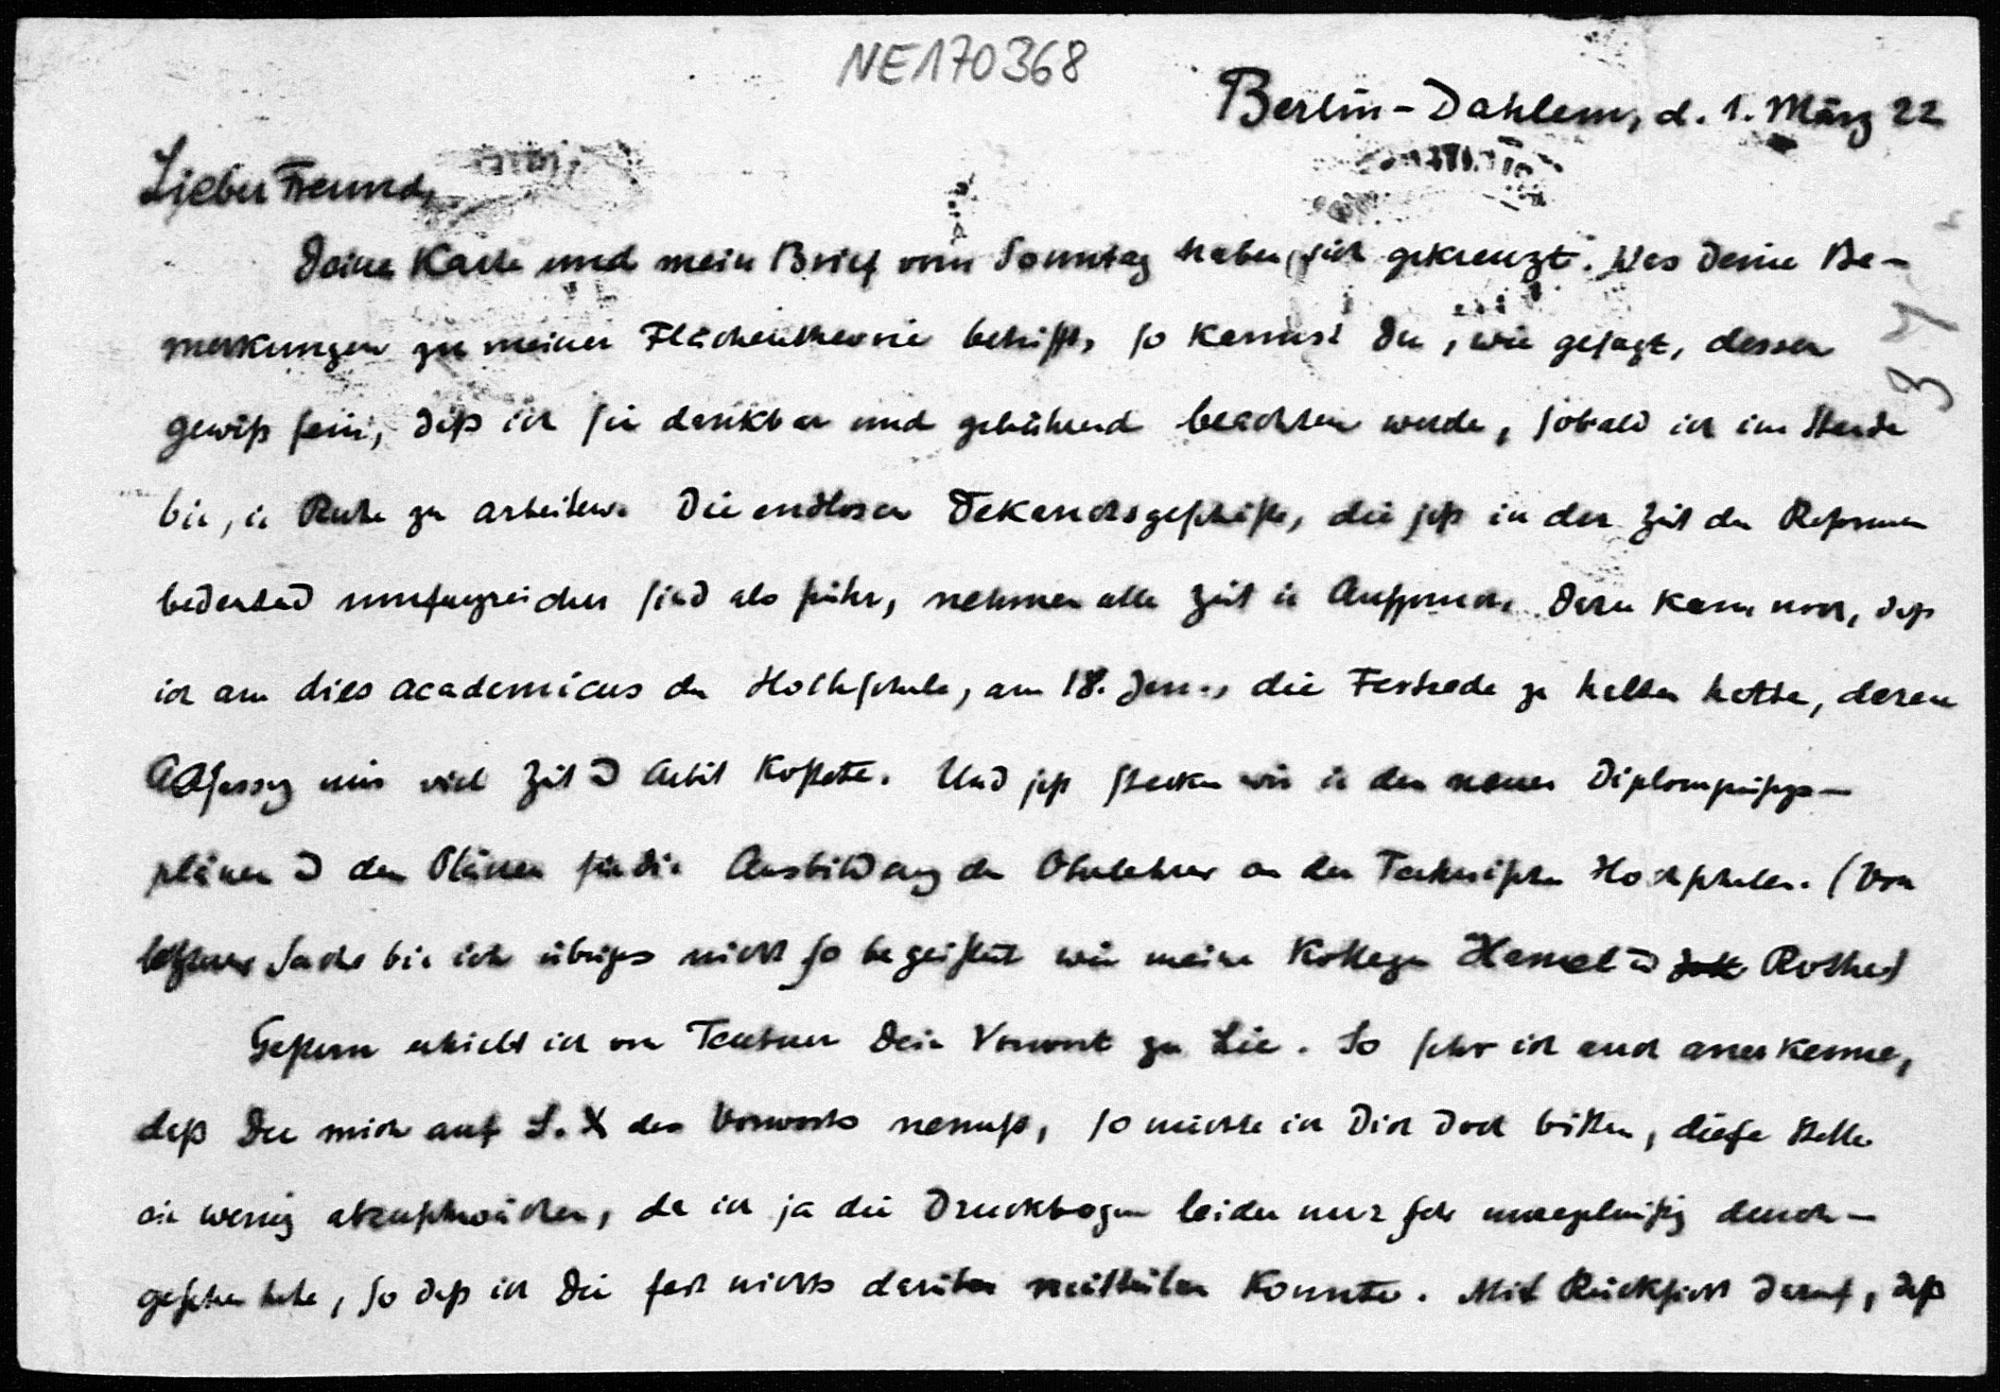 NE170368
Berlin-Dahlem, d. 1. März 22
Lieber Freund,
Deine Karte und mein Brief vom Sonntag haben sich gekreuzt. Was Deine Be-
merkungen zu meiner Flächentheorie betrifft, so kannst Du, wie gesagt, dessen
gewiß sein, daß ich sie dankbar und gebührend beachten werde, sobald ich im Stande
bin, in Ruhe zu arbeiten. Die endlosen Dekanatsgeschäfte, die jetzt in der Zeit der Reformen
bedeutend umfangreicher sind als früher, nehmen alle Zeit in Anspruch. Dazu kam noch, daß
ich am dies academicus der Hochschule, am 18. Jan., die Festrede zu halten hatte, deren
Abfassung mir viel Zeit u Arbeit kostete. Und jetzt stecken wir in den neuen Diplomprüfungs-
plänen u den Plänen für die Ausbildung der Oberlehrer an den Technischen Hochschulen. (Von
letzterer Sache bin ich übrigens nicht so begeistert wie meine Kollegen Hamel u Rothe)
Gestern erhielt ich von Teubner Dein Vorwort zu Lie. So sehr ich auch anerkenne,
daß Du mich auf S. X des Vorworts nennst, so möchte ich Dich doch bitten, diese Stelle
ein wenig abzuschwächen, da ich ja die Druckbogen leider nur sehr unregelmäßig durch-
gesehen habe, so daß ich Dir fast nichts darüber mitteilen konnte. Mit Rücksicht darauf, daß